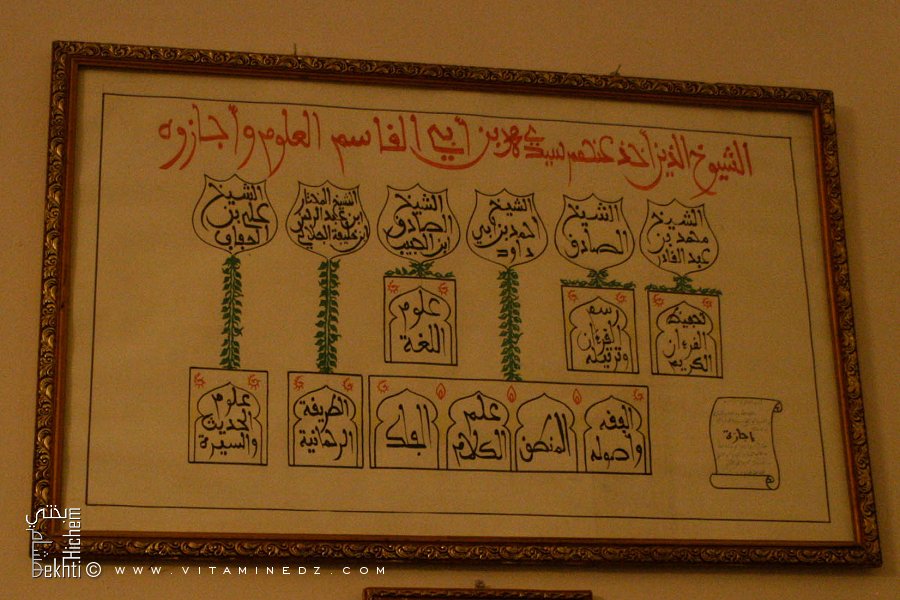 الشيوخ الذين أخذ عنهم سيدي محمد بن أبي القاسم العلوم وأجازوه
الشيخ
محمد بن
عبد القادر
تحفيظ
القرءان
الكريم
الشيخ
الصادق
رسم
القرءان
وترتيله
الشيخ
أحمد بن أبي
داود
الفقه
وأصوله
المنطق
علم
الكلام
الفلك
الشيخ
الصادق
ابن الحبيب
علوم
اللغة
الشيخ المختار
ابن عبد الرحمن
ابن خليفة الجلالي
الطريقة
الرحمانية
الشيخ
علي بن
علوم
الحديث
والسيرة
إجازة
بختي
Hichem
Bekhti © www.vitaminedz.com